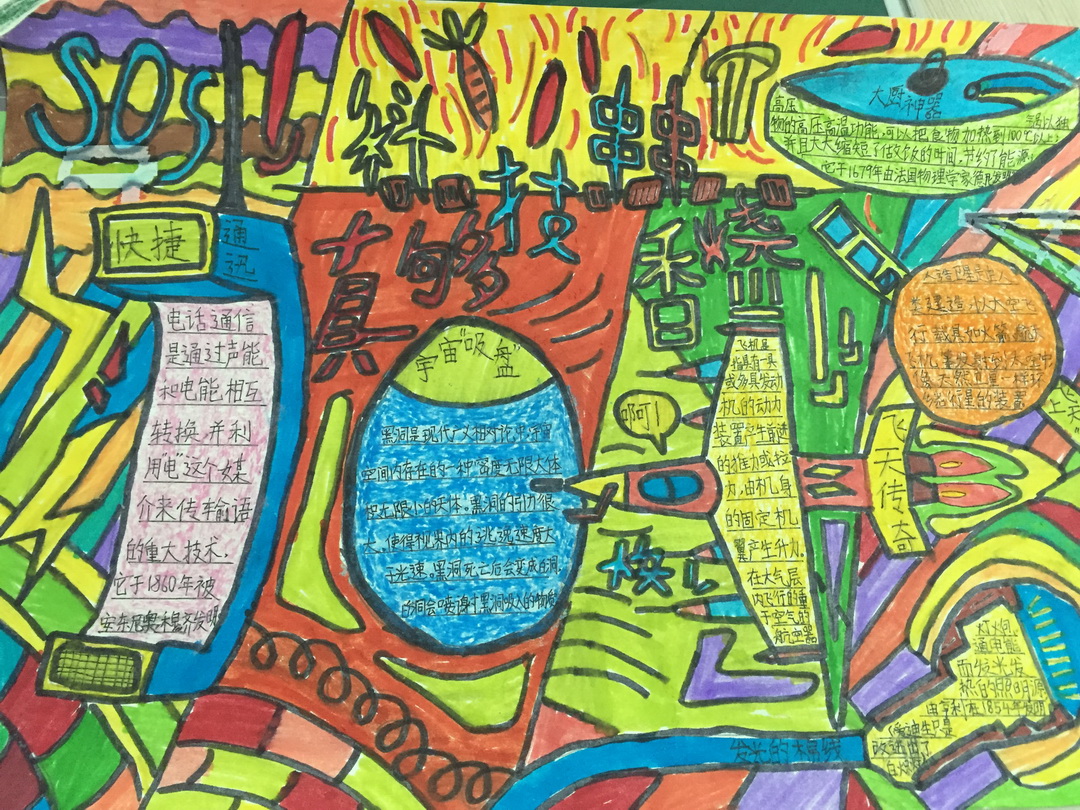 SOS!!
科技串串
真够多
香烧
大厨神器
高压
物的高压高温功能,可以把食物加热到100℃以上,
并且大大缩短了做饭的时间,节约了能源,
它于1679年由法国物理学家德
快捷
通
讯
电话通信
是通过声能
和电能相互
转换并利
用"电"这个媒
介来传输语
的重大技术,
它于1860年被
安东尼奥·梅乌齐发明
宇宙"吸盘"
黑洞是现代广义相对论中宇宙
空间内存在的一种密度无限大体
积无限小的天体。黑洞的引力很
大,使得视界内的逃逸速度大
于光速。黑洞死亡后会变成白洞,
啊!
飞机是
指具有一具
或多具发动
机的动力
装置产生前进
的推力或拉
力,由机身
的固定机
翼产生升力,
在大气层
内飞行的重
于空气的
航空器
人造卫星是由人
类建造,以太空飞
行载具如火箭、航天
飞机等发射到太空中
像天然卫星一样环
绕行星的装置
飞天传奇
灯泡,
通电能
而发光发
热的照明源
由亨利在1854年发明
爱迪生只是
改进了
发光的大